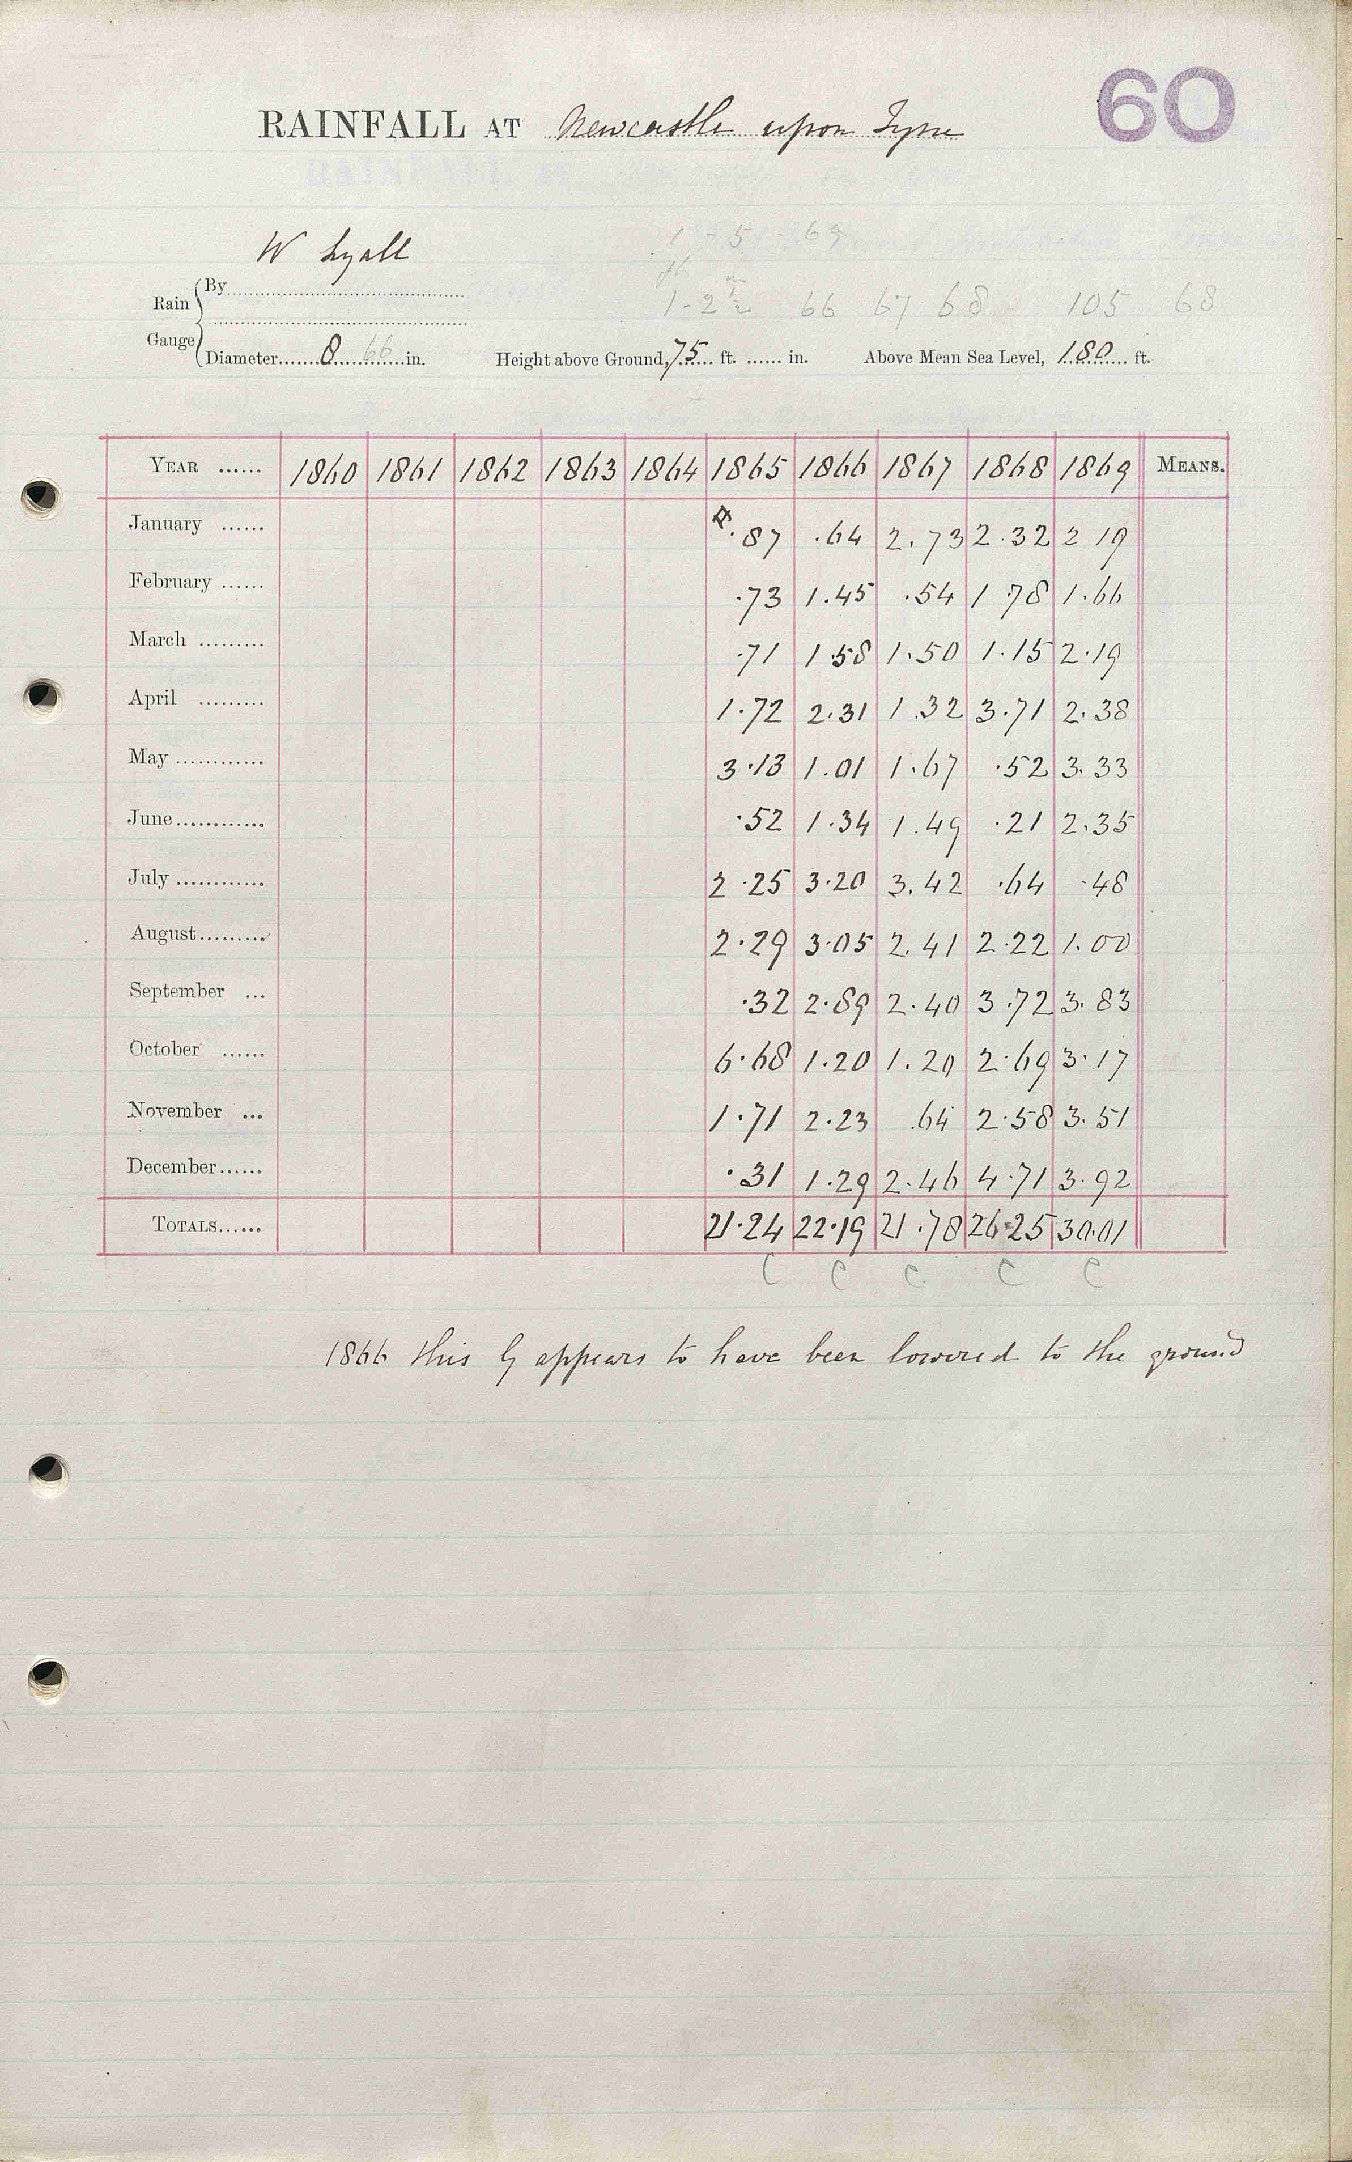 60
RAINFALL AT Newcastle upon Tyne
W Lyall
1 - 5 - 69
Rain Gauge { By
1 - 2 66 67 68 105 68
Diameter....... 8 66 in. Height above Ground, 75 ft. ...... in. Above Mean Sea Level, 180 ft.
YEAR ...... 1860 1861 1862 1863 1864 1865 1866 1867 1868 1869 MEANS.
January ...... .87 .64 2.73 2.32 2 19
February ...... .73 1.45 .54 1 78 1.66
March ......... .71 1.58 1.50 1.15 2.19
April ......... 1.72 2.31 1.32 3.71 2.38
May ............ 3.13 1.01 1.67 .52 3.33
June ............ .52 1.34 1.49 .21 2.35
July ............ 2.25 3.20 3.42 .64 .48
August ......... 2.29 3.05 2.41 2.22 1.00
September ... .32 2.89 2.40 3.72 3.83
October ...... 6.68 1.20 1.20 2.69 3.17
November ... 1.71 2.23 .64 2.58 3.51
December ...... .31 1.29 2.46 4.71 3.92
TOTALS ...... 21.24 22.19 21.78 26.25 30.01
C C C C C
1866 this G appears to have been lowered to the ground